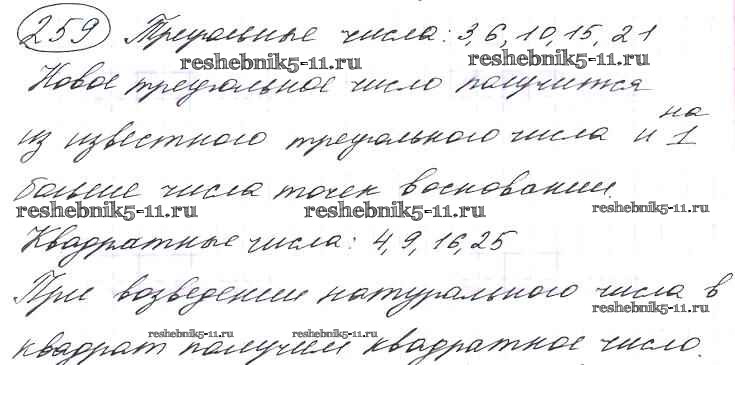 259 Треугольные числа: 3, 6, 10, 15, 21
reshebnik5-11.ru reshebnik5-11.ru
Новое треугольное число получится
на
из известного треугольного числа и 1
больше числа точек в основании.
reshebnik5-11.ru reshebnik5-11.ru reshebnik5-11.ru
Квадратные числа: 4, 9, 16, 25
При возведении натурального числа в
reshebnik5-11.ru reshebnik5-11.ru reshebnik5-11.ru
квадрат получим квадратное число.